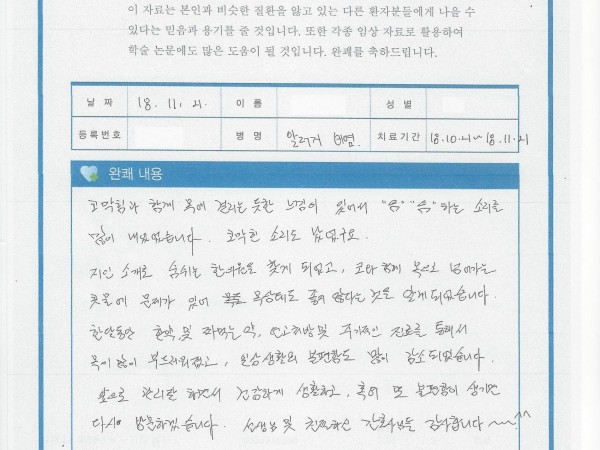 이 자료는 본인과 비슷한 질환을 앓고 있는 다른 환자분들에게 나을 수
있다는 믿음과 용기를 줄 것입니다. 또한 각종 임상 자료로 활용하여
학술 논문에도 많은 도움이 될 것입니다. 완쾌를 축하드립니다.
날 짜 18. 11. 21. 이 름 성 별
등록번호 병 명 알러지 비염 치료기간 18.10.21~18.11.21
완쾌 내용
코막힘과 함께 목에 걸리는 듯한 느낌이 있어서 "음" "음" 하는 소리를
많이 내었었습니다. 코막힌 소리도 났었구요.
지인 소개로 숨쉬는 한의원을 찾게 되었고, 코와 함께 목으로 넘어가는
콧물에 문제가 있어 목상태도 좋지 않다는 것을 알게되었습니다.
한달동안 한약 및 짜먹는 약, 연고처방 및 주기적인 진료를 통해서
목이 많이 부드러워졌고, 일상생활의 불편함도 많이 감소되었습니다.
앞으로 관리를 하면서 건강하게 생활하고, 혹여 또 불편함이 생기면
다시 방문하겠습니다. 선생님 및 친절하신 간호사님들 감사합니다~~^^